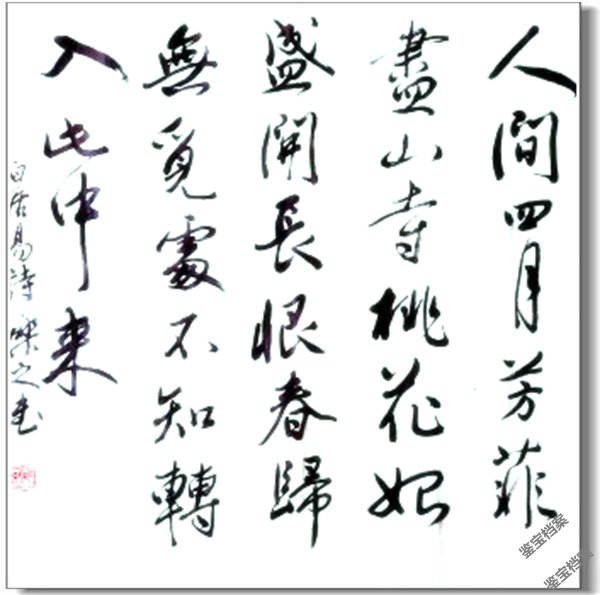 人間四月芳菲
盡山寺桃花始
盛開長恨春歸
無覓處不知轉
入此中来
白居易詩樂之書
鉴宝档案
鉴宝档案